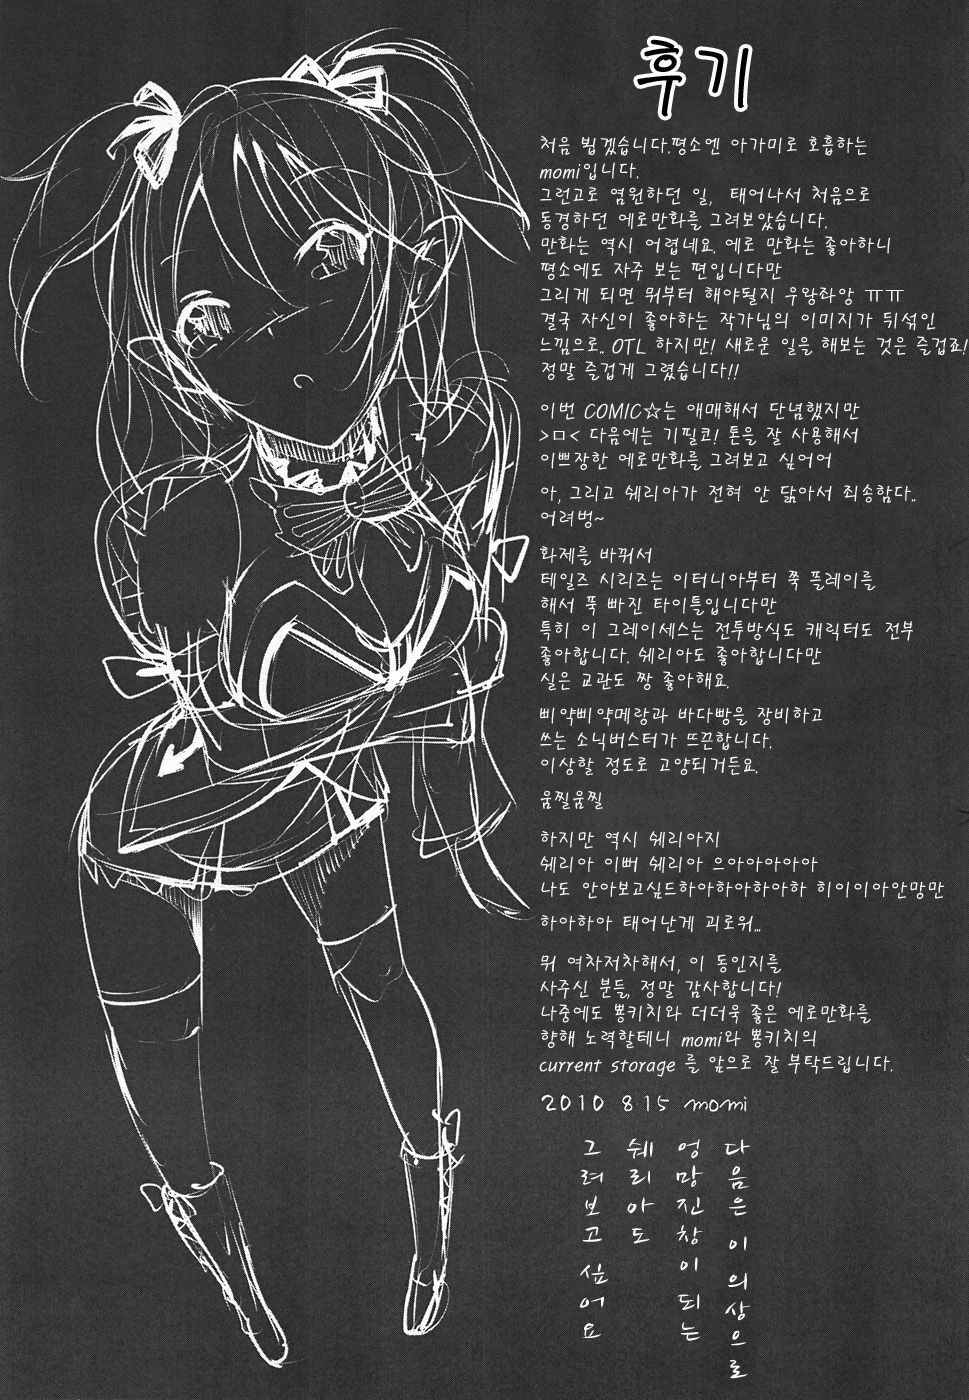 후기
처음 뵙겠습니다.평소엔 아가미로 호흡하는
momi입니다.
그런고로 염원하던 일, 태어나서 처음으로
동경하던 에로만화를 그려보았습니다.
만화는 역시 어렵네요 에로 만화는 좋아하니
평소에도 자주 보는 편입니다만
그리게 되면 뭐부터 해야될지 우왕좌앙 ㅠㅠ
결국 자신이 좋아하는 작가님의 이미지가 뒤섞인
느낌으로.. OTL 하지만! 새로운 일을 해보는 것은 즐겁죠!
정말 즐겁게 그렸습니다!!
이번 COMIC☆는 애매해서 단념했지만
>ㅁ< 다음에는 기필코! 톤을 잘 사용해서
이쁘장한 에로만화를 그려보고 싶어어
아, 그리고 쉐리아가 전혀 안 닮아서 죄송함다..
어려벙~
화제를 바꿔서
테일즈 시리즈는 이터니아부터 쭉 플레이를
해서 푹 빠진 타이틀입니다만
특히 이 그레이세스는 전투방식도 캐릭터도 전부
좋아합니다. 쉐리아도 좋아합니다만
실은 교관도 짱 좋아해요.
삐약삐약메랑과 바다빵을 장비하고
쓰는 소닉버스터가 뜨끈합니다.
이상할 정도로 고양되거든요.
움찔움찔
하지만 역시 쉐리아지
쉐리아 이뻐 쉐리아 으아아아아아
나도 안아보고싶드하아하아하아하 히이이아안망만
하아하아 태어난게 괴로워...
뭐 여차저차해서, 이 동인지를
사주신 분들, 정말 감사합니다!
나중에도 뽕키치와 더더욱 좋은 에로만화를
향해 노력할테니 momi와 뽕키치의
current storage 를 앞으로 잘 부탁드립니다.
2010 8.15 momi
다음은 이 의상으로
엉망진창이 되는
쉐리아도
그려보고 싶어요